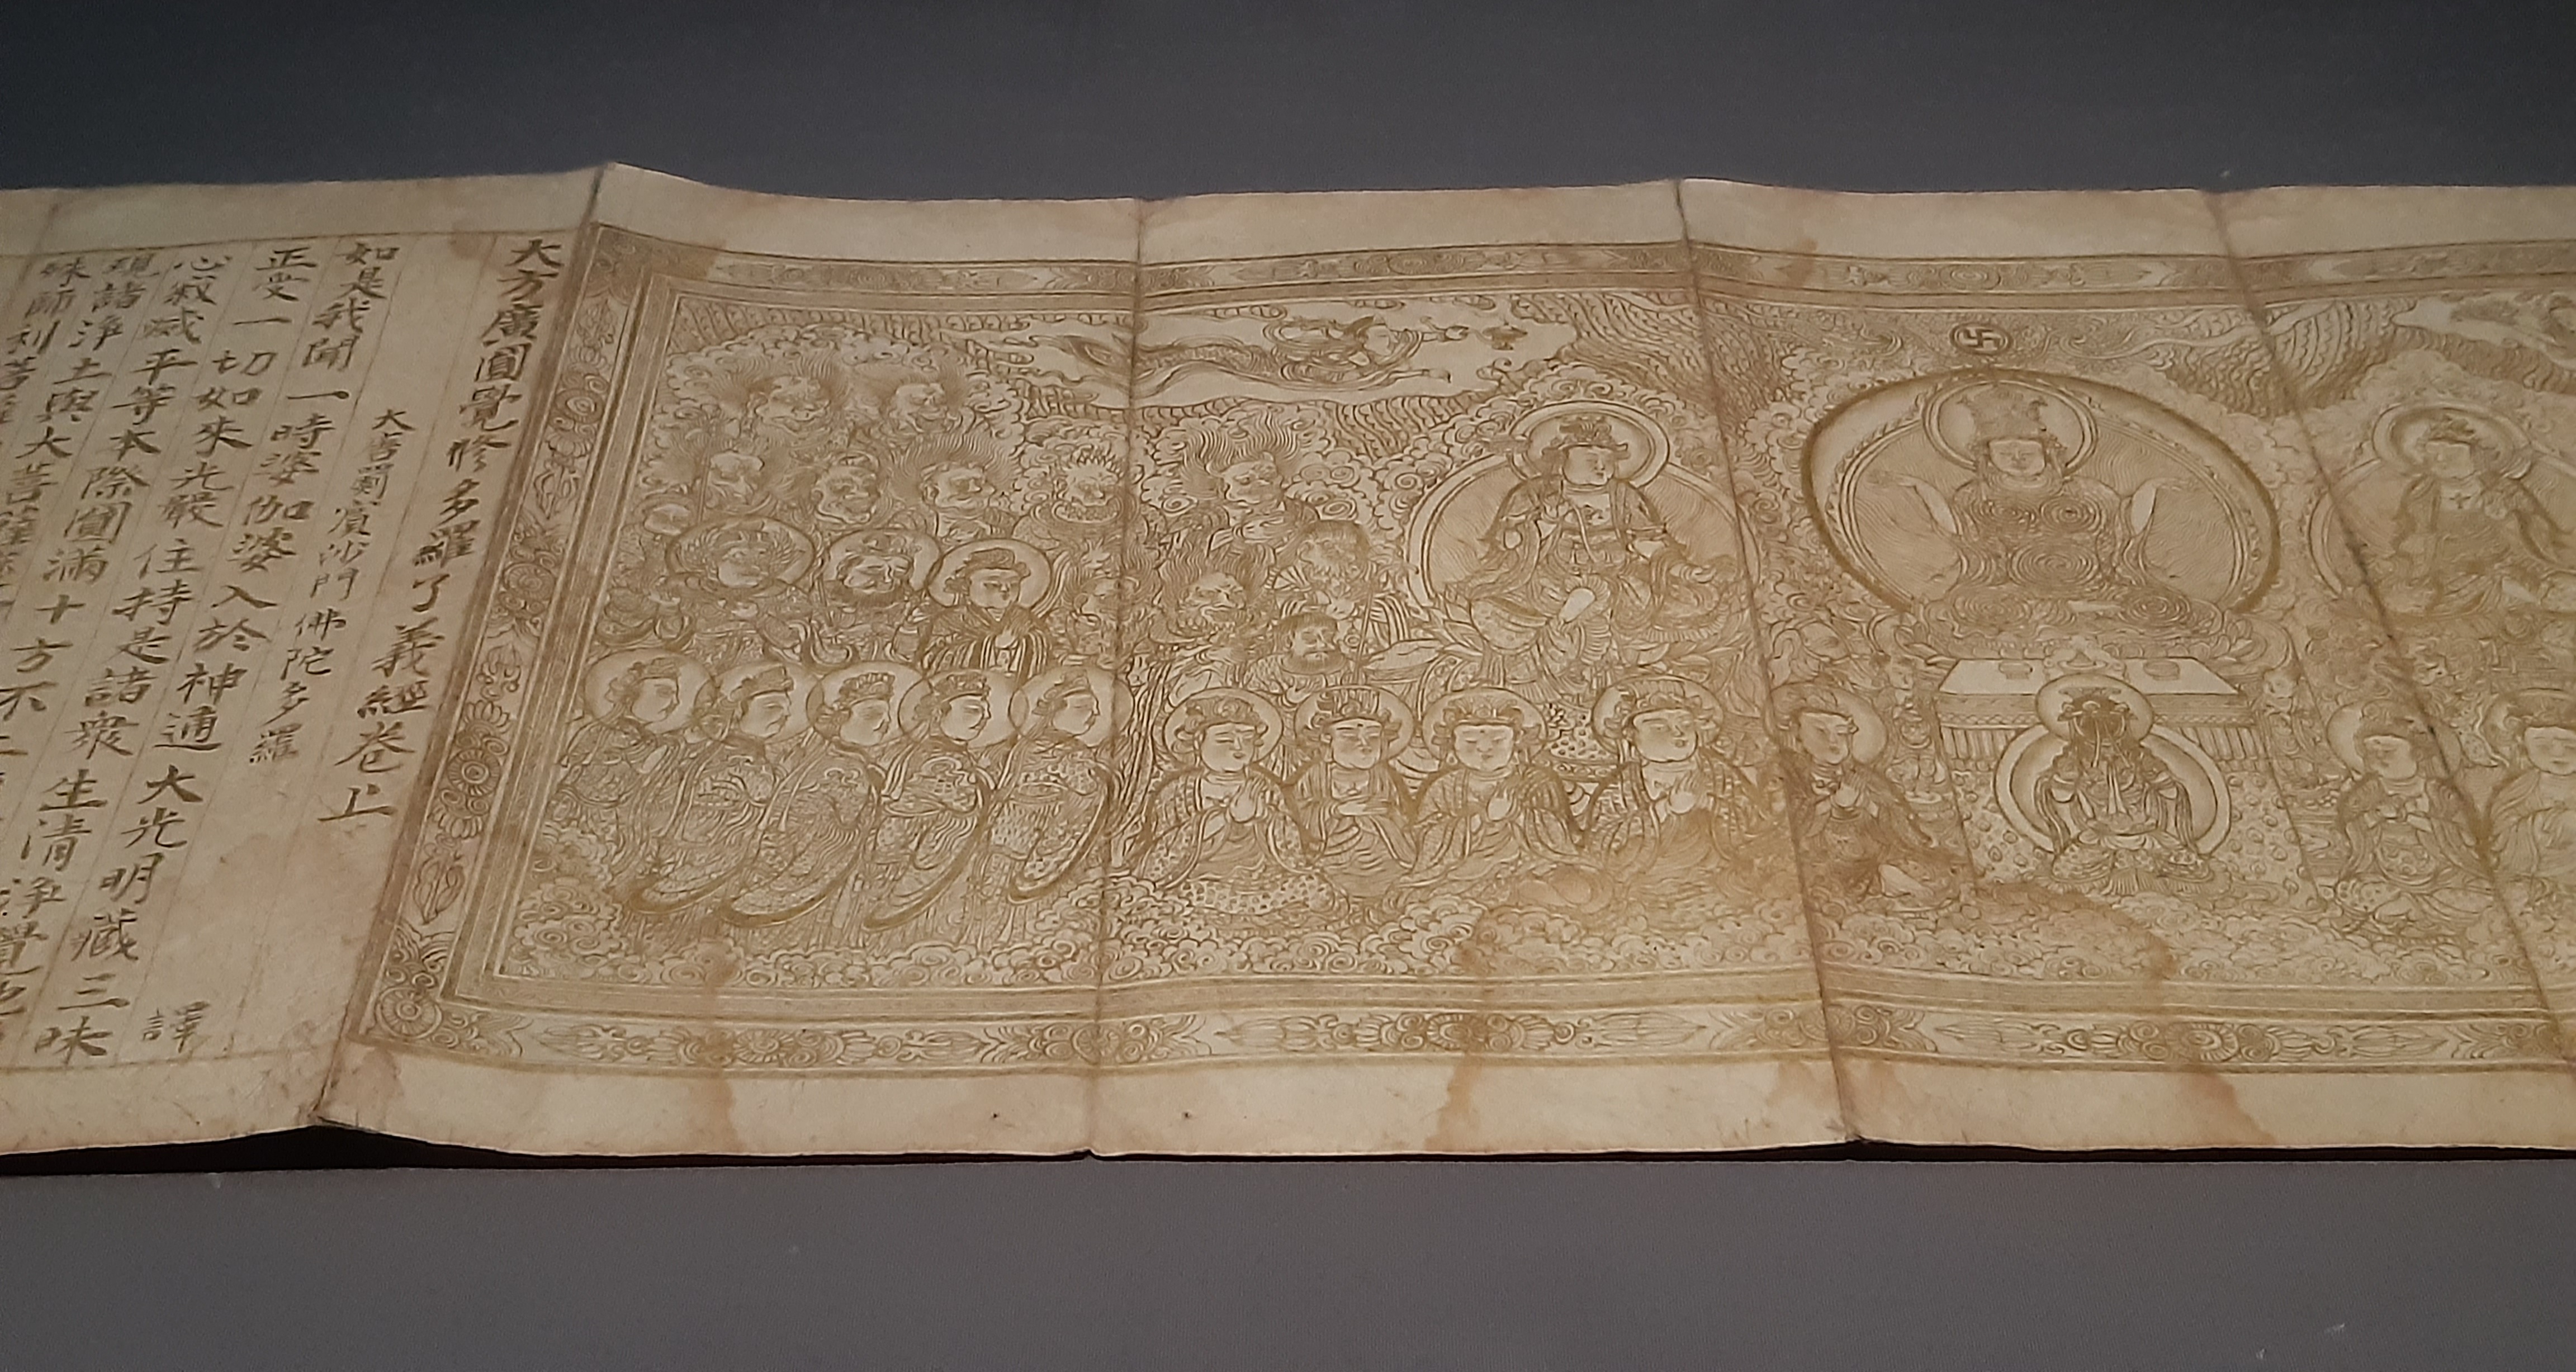 大方廣圓覺修多羅了義經卷上
大唐罽賓沙門佛陀多羅 譯
如是我聞一時婆伽婆入於神通大光明藏三昧
正受一切如來光嚴住持是諸衆生清淨覺地
心寂滅平等本際圓滿十方不二
現諸淨土與大菩薩
殊師利菩